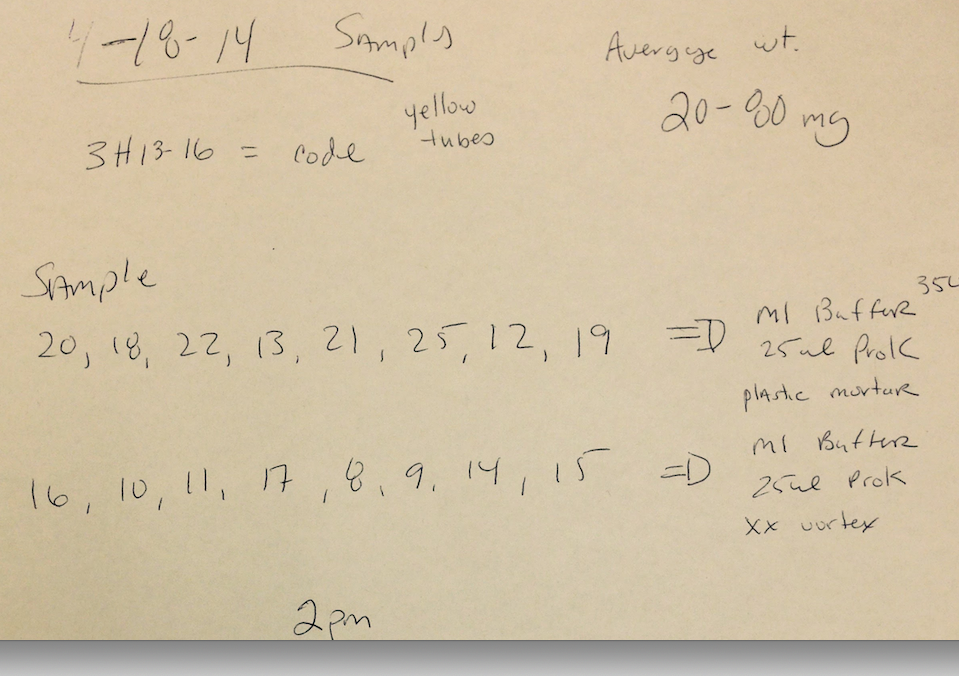 4-18-14 Samples
Average wt.
20-80 mg
yellow
tubes
3H13-16 = code
Sample
20, 18, 22, 13, 21, 25, 12, 19 => M1 Buffer 350
25ul ProK
plastic mortar
16, 10, 11, 17, 8, 9, 14, 15 => M1 Buffer
25ul ProK
xx vortex
2pm